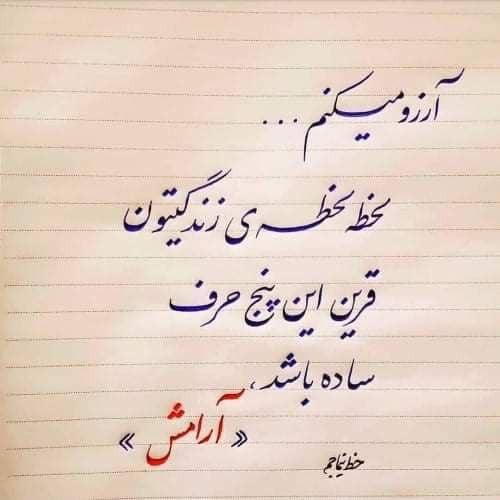 آرزو میکنم ...
لحظه لحظه ی زندگیتون
قرین این پنج حرف
ساده باشد،
« آرامش »
خط نیما جم